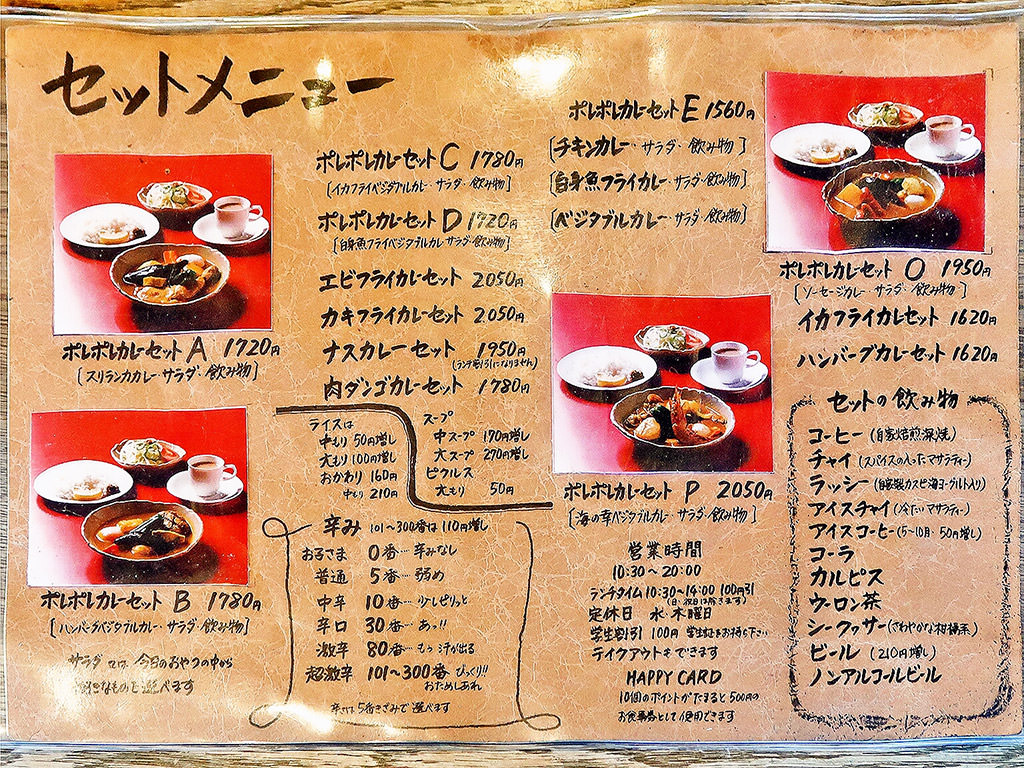 セットメニュー
ポレポレカレーセット A 1720円
[スリランカカレー・サラダ・飲み物]
ポレポレカレーセット B 1780円
[ハンバーグベジタブルカレー・サラダ・飲み物]
サラダ 又は 今日のおやつの中から
お好きなものを選べます
ポレポレカレーセット C 1780円
[イカフライベジタブルカレー・サラダ・飲み物]
ポレポレカレーセット D 1720円
[白身魚フライベジタブルカレー サラダ・飲み物]
エビフライカレーセット 2050円
カキフライカレーセット 2050円
ナスカレーセット 1950円
(ランチ割引になりません)
肉ダンゴカレーセット 1780円
ライスは
中もり 50円増し
大もり 100円増し
おかわり 160円
中もり 210円
スープ
中スープ 170円増し
大スープ 270円増し
ピクルス
大もり 50円
辛み 101〜300番は110円増し
お子さま 0番…辛みなし
普通 5番…弱め
中辛 10番…少しピリっと
辛口 30番…あっ!!
激辛 80番…もっと汗が出る
超激辛 101〜300番 びっくり!!
おためしあれ
辛さは5番きざみで選べます
ポレポレカレーセット E 1560円
[チキンカレー・サラダ・飲み物]
[白身魚フライカレー・サラダ・飲み物]
[ベジタブルカレー・サラダ・飲み物]
ポレポレカレーセット P 2050円
[海の幸ベジタブルカレー・サラダ・飲み物]
営業時間
10:30〜20:00
ランチタイム 10:30〜14:00 100円引
(日・祝日は除きます)
定休日 水・木曜日
学生割引 100円 学生証をお持ち下さい
テイクアウトもできます
HAPPY CARD
10個のポイントがたまると500円の
お食事券として使用できます
ポレポレカレーセット O 1950円
[ソーセージカレー・サラダ・飲み物]
イカフライカレーセット 1620円
ハンバーグカレーセット 1620円
セットの飲み物
コーヒー (自家焙煎深焼)
チャイ (スパイスの入ったマサラティー)
ラッシー (自家製カスピ海ヨーグルト入り)
アイスチャイ (冷たいマサラティー)
アイスコーヒー (5〜10月・50円増し)
コーラ
カルピス
ウーロン茶
シークァサー (さわやかな柑橘系)
ビール (210円増し)
ノンアルコールビール